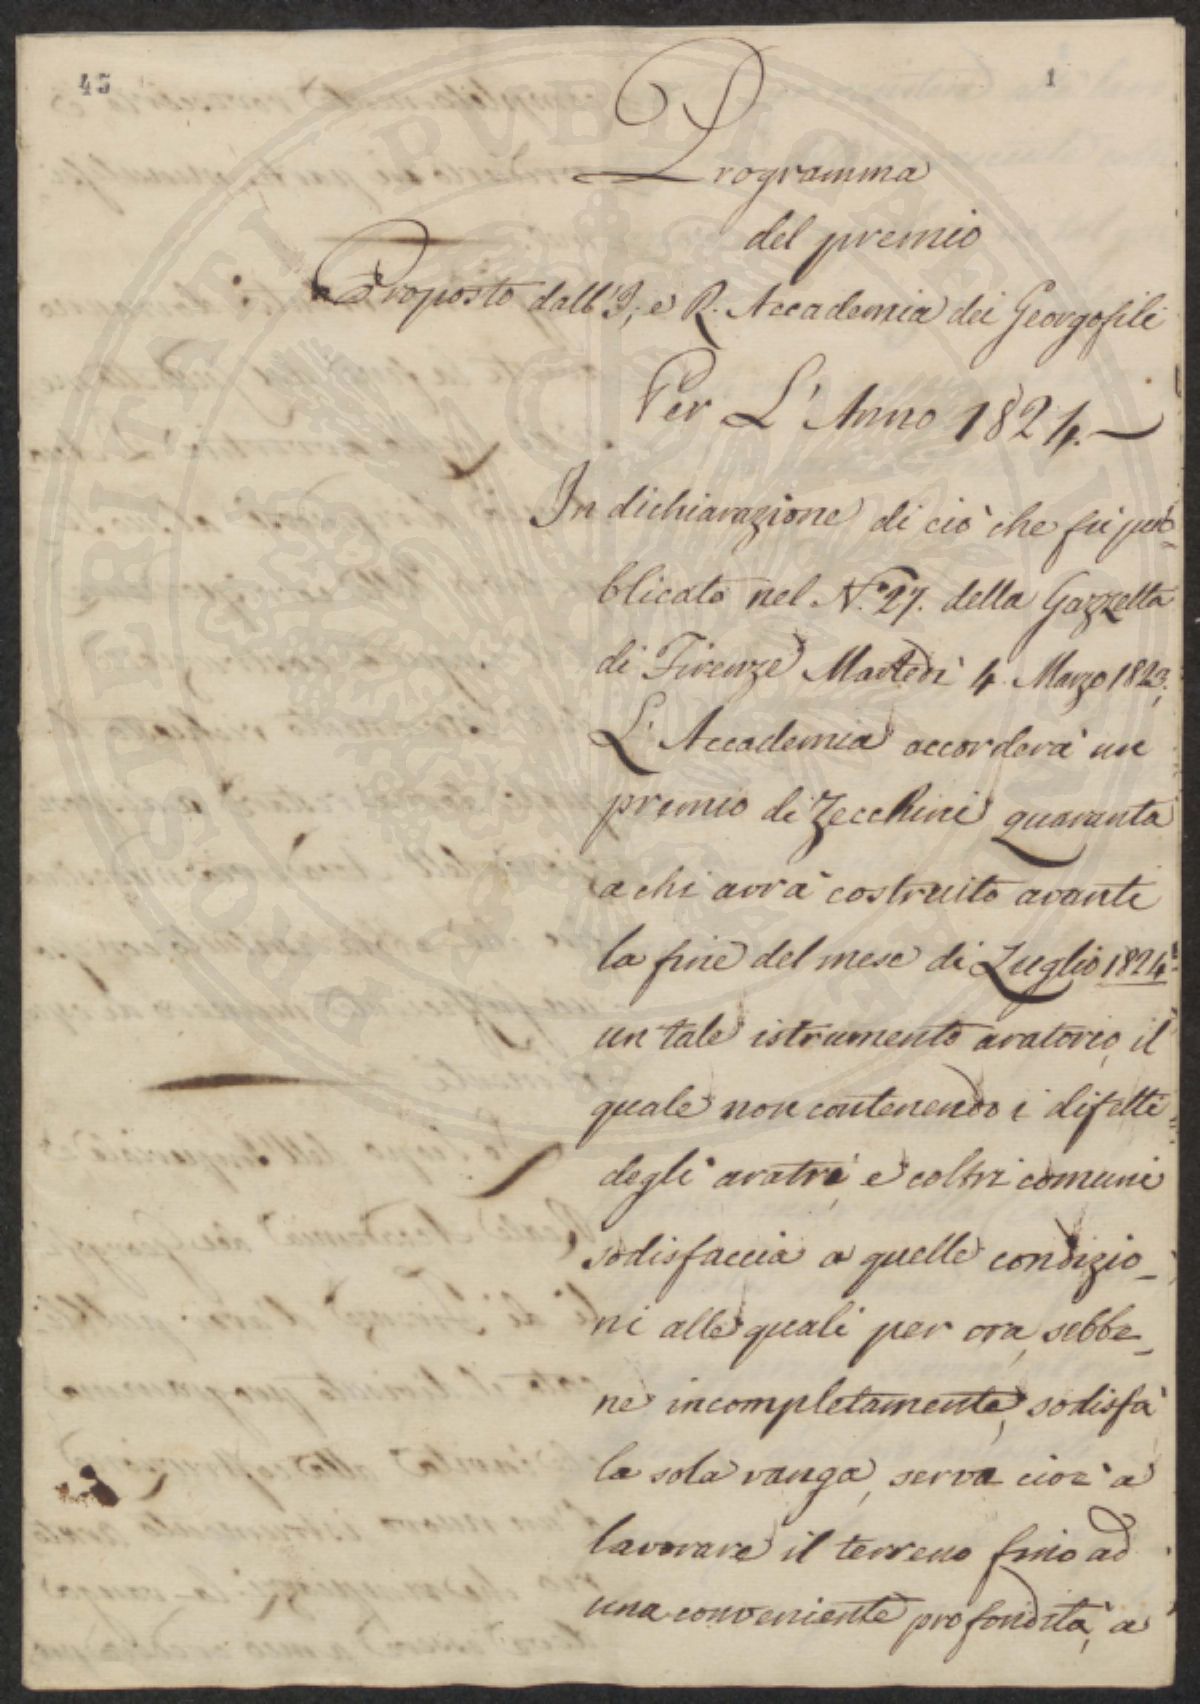 45
1
Programma
del premio
Proposto dall'I. e R. Accademia dei Georgofili
Per L'Anno 1824.
In dichiarazione di ciò che fu pub-
blicato nel N.° 27. della Gazzetta
di Firenze Martedì 4 Marzo 1823.
L'Accademia accorderà un
premio di Zecchini quaranta
a chi avrà costruito avanti
la fine del mese di Luglio 1824
un tale istrumento aratorio, il
quale non contenendo i difetti
degli aratri, e coltri comuni
sodisfaccia a quelle condizio-
ni alle quali per ora, sebbe-
ne incompletamente, sodisfà
la sola vanga, serva cioè a
lavorare il terreno fino ad
una conveniente profondità, a